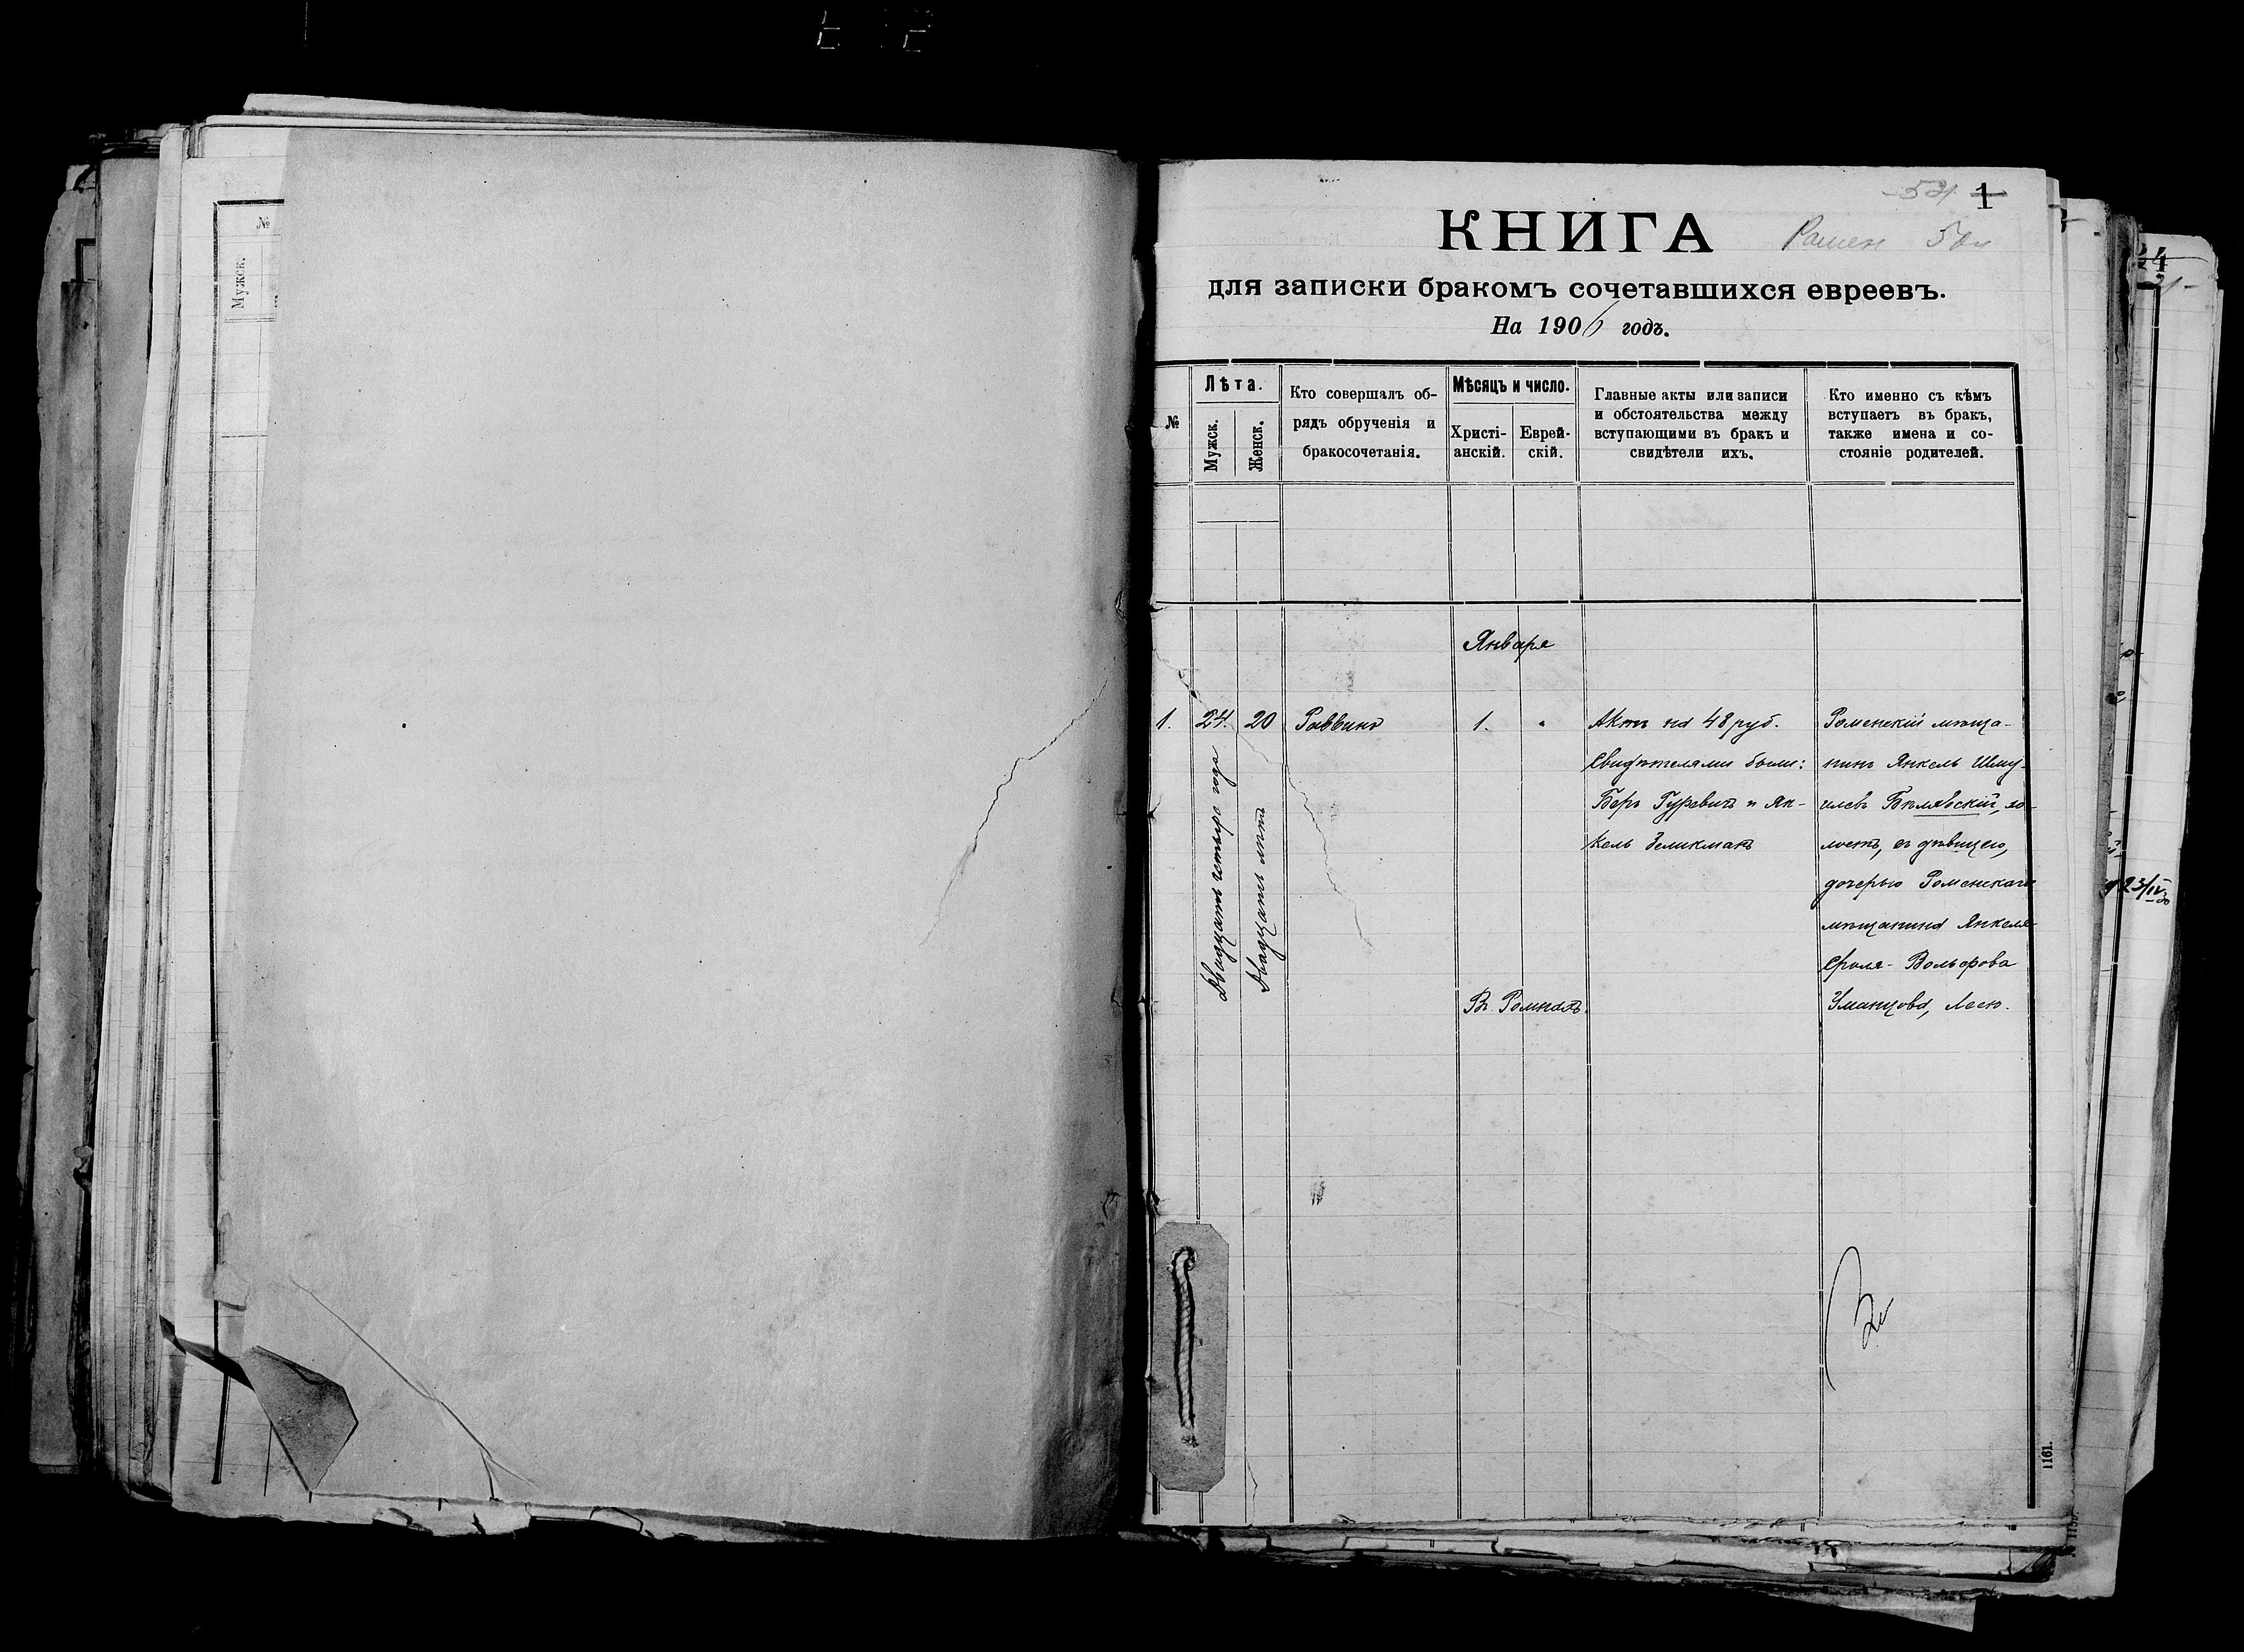 №
Мужск.
1
КНИГА
для записки бракомъ сочетавшихся евреевъ.
На 1906 годъ.
№
Лѣта.
Мужск.
Женск.
Кто совершалъ об-
рядъ обрученія и
бракосочетанія.
Мѣсяцъ и число.
Христі-
анскій.
Еврей-
скій.
Главные акты или записи
и обстоятельства между
вступающими въ бракъ и
свидѣтели ихъ.
Кто именно съ кѣмъ
вступаетъ въ бракъ,
также имена и со-
стояніе родителей.
Января
1.
24.
Двадцать четыре года
20
Двадцать лѣтъ
Раввинъ
1.
Въ Ромнахъ.
Актъ на 48 руб.
Свидѣтелями были:
Беръ Гуревичъ и Ян-
кель Зеликманъ
Роменскій мѣща-
нинъ Янкель Шму-
илевъ Бѣлявскій, хо-
лостъ, съ дѣвицею,
дочерью Роменскаго
мѣщанина Янкеля
Сроля-Вольфова
Уманцова, Леею.
1161.